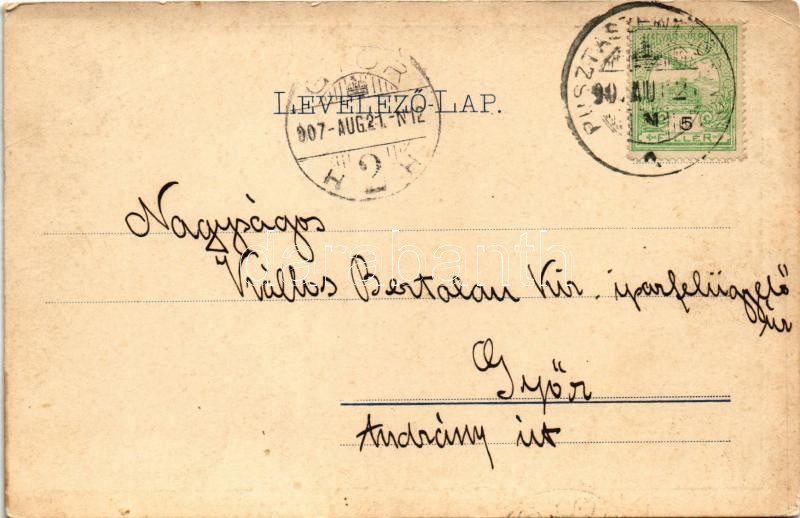 LEVELEZŐ-LAP.
GYŐR
907-AUG.21.-N12
2
MAGYAR KIR. POSTA
5
FILLÉR
Nagyságos
Kállos Bertalan Kir. iparfelügyelő
úr
Győr
Andrássy út
darabanth